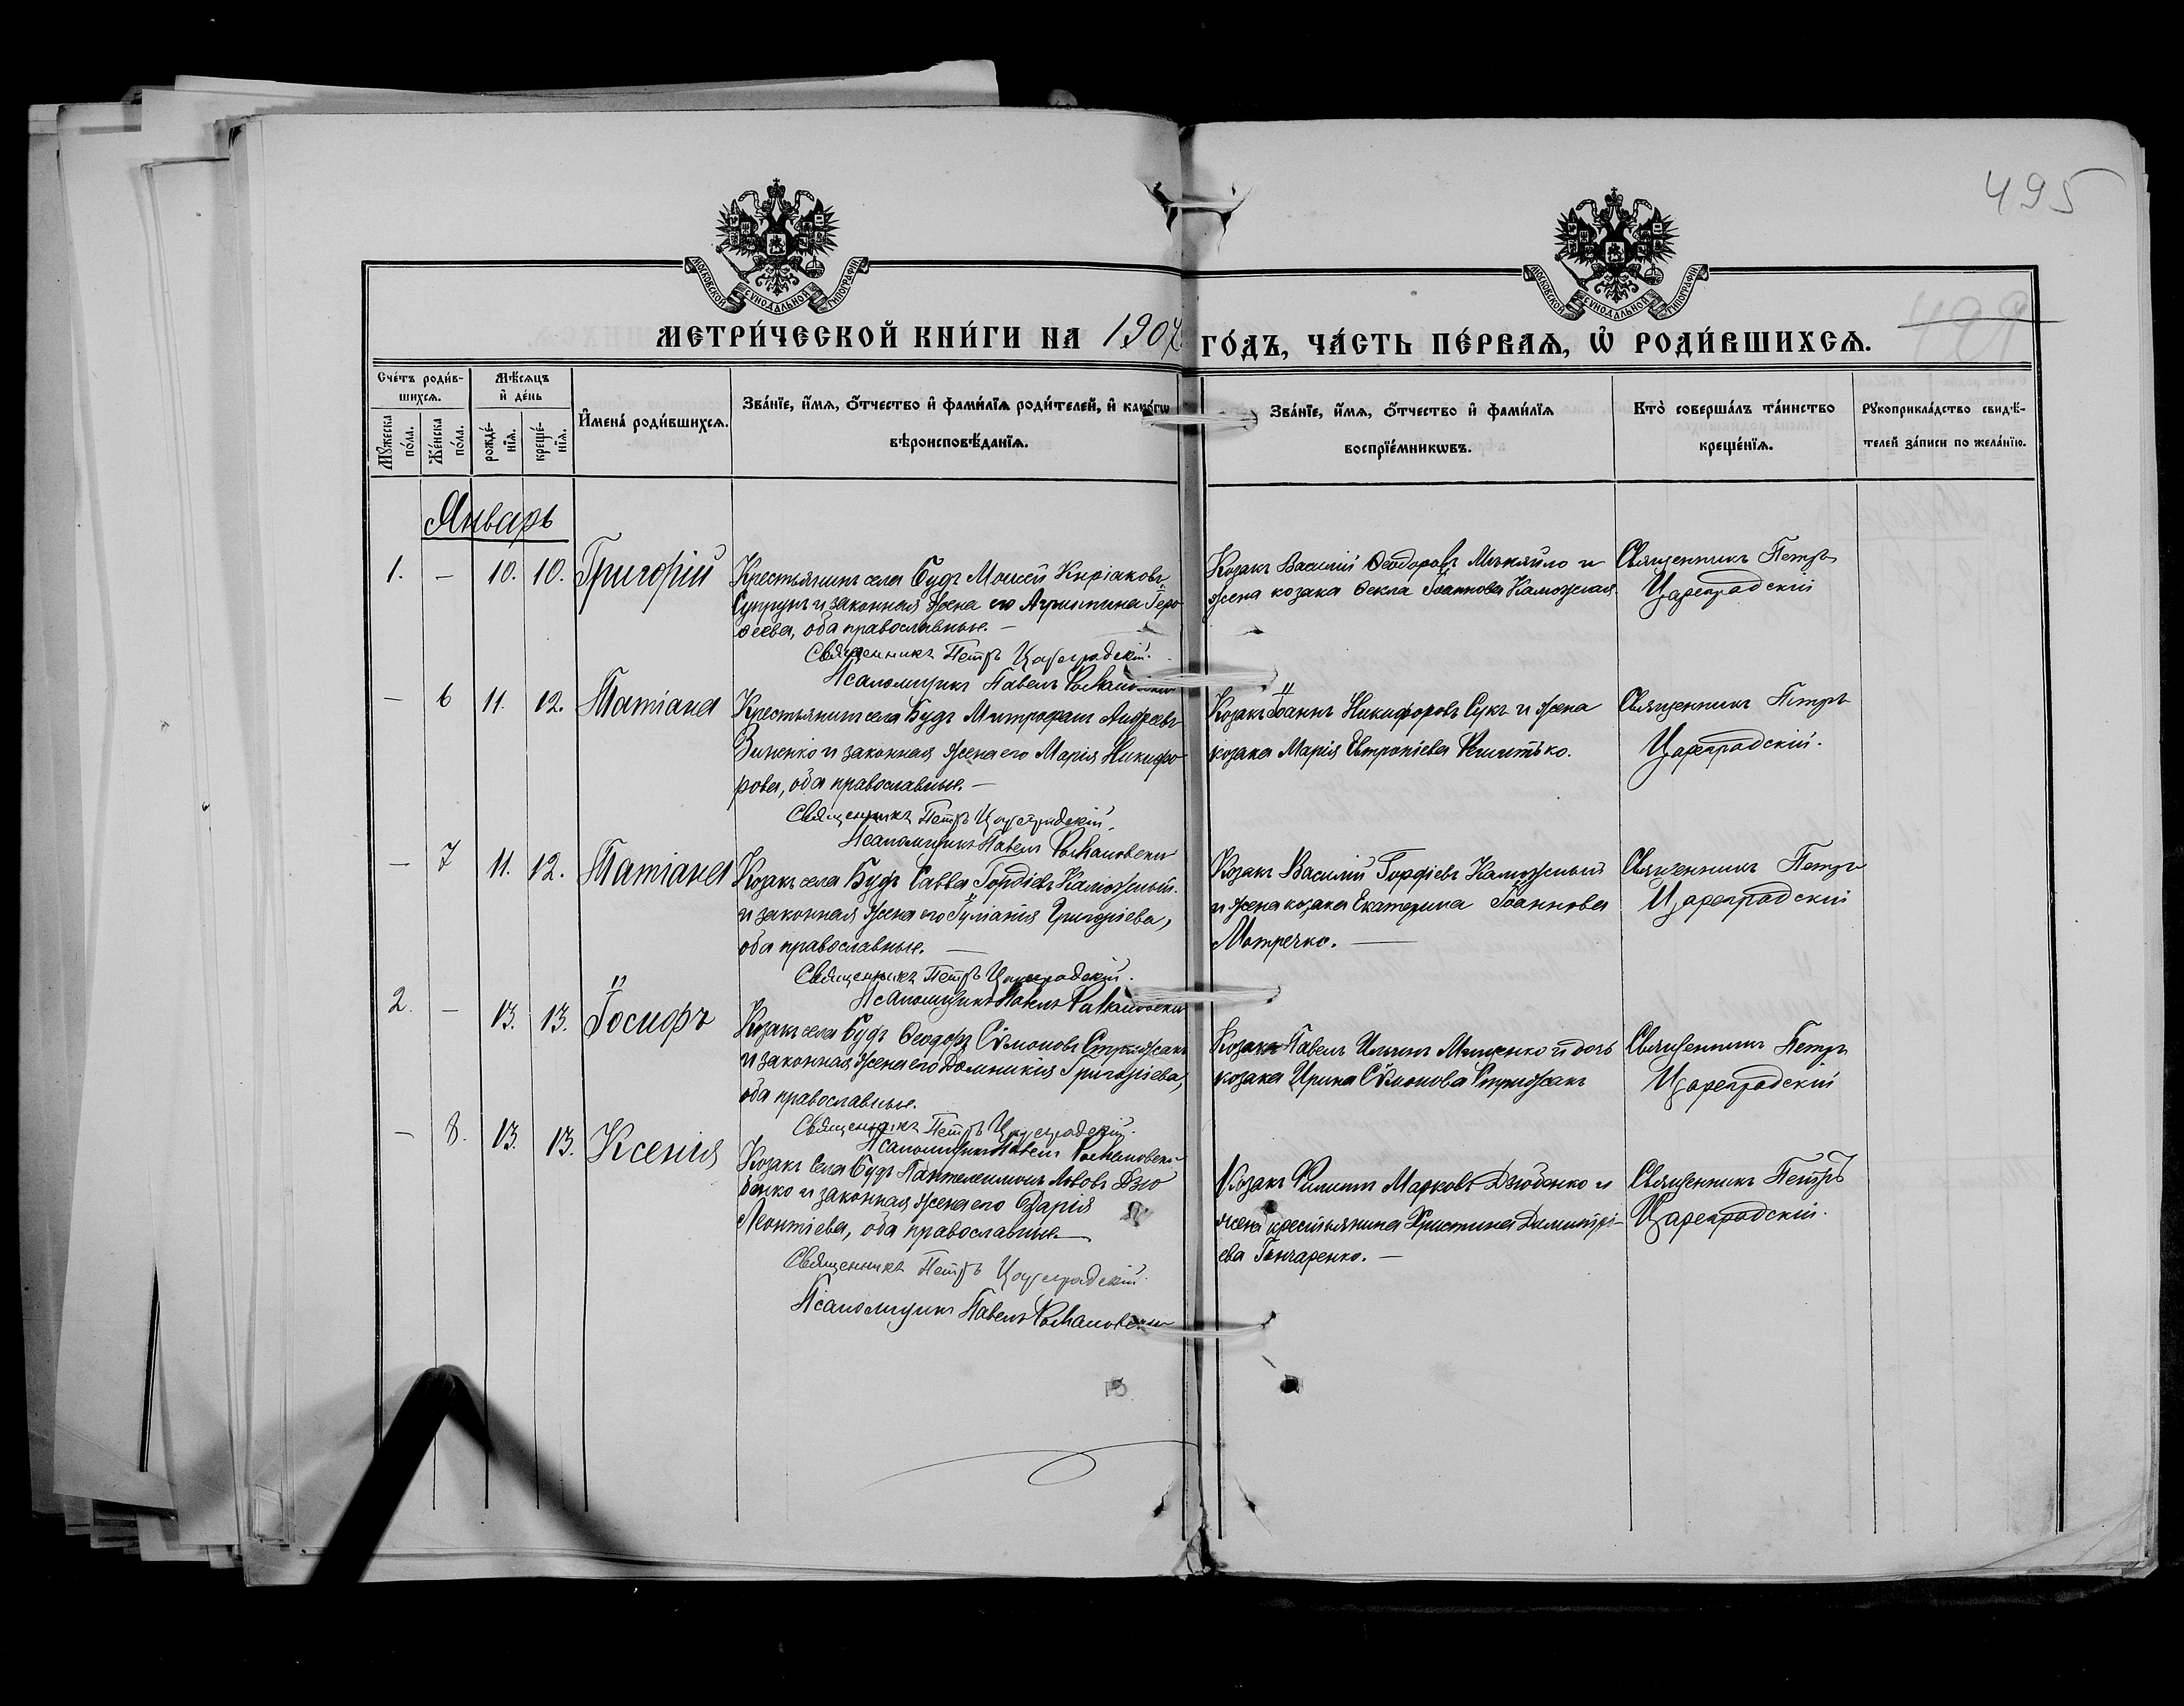 495
499
МОСКОВСКОЙ СѴНОДАЛЬНОЙ ТИПОГРАФІИ
МОСКОВСКОЙ СѴНОДАЛЬНОЙ ТИПОГРАФІИ
МЕТРИ́ЧЕСКОЙ КНИ́ГИ НА 1907 ГО́ДЪ, ЧА́СТЬ ПЕ́РВАѦ, Ѡ҆ РОДИ́ВШИХСѦ.
Сче́тъ роди́в-
шихсѧ.
Мꙋ́жеска по́ла.
Же́нска по́ла.
Мѣ́сѧцъ
и҆ де́нь
рожде́-
нїѧ.
креще́-
нїѧ.
И҆мена̀ роди́вшихсѧ.
Зва́нїе, и҆́мѧ, ѻ҆́тчество и҆ фами́лїѧ роди́телей, и҆ како́гѡ
вѣроисповѣ́данїѧ.
Зва́нїе, и҆́мѧ, ѻ҆́тчество и҆ фами́лїѧ
воспрїе́мникѡвъ.
Кто̀ соверша́лъ та́инство
креще́нїѧ.
Рꙋкоприкла́дство свидѣ́-
телей за́писи по жела́нїю.
Январь
1. — 10. 10. Григорій
Крестьянинъ села Будъ Моисей Киріаковъ
Супрунъ и законная жена его Агриппина Геро-
ѳеева, оба православные. —
Священникъ Петръ Цареградскій.
Псаломщикъ Павелъ Романовскій
Козакъ Василій Ѳеодоровъ и
жена козака Ѳекла Іоаннова Каможная
Священникъ Петръ
Цареградскій
— 6 11. 12. Татіана
Крестьянинъ села Будъ Митрофанъ Андреевъ
Зименко и законная жена его Марія Никифо-
рова, оба православные. —
Священникъ Петръ Цареградскій.
Псаломщикъ Павелъ Романовскій
Козакъ Іоаннъ Никифоровъ Сукъ и жена
козака Марія Евтропіева Решитько.
Священникъ Петръ
Цареградскій.
— 7 11. 12. Татіана
Козакъ села Будъ Савва Гордіевъ Каможный
и законная жена его Іуліанія Григоріева,
оба православные. —
Священникъ Петръ Цареградскій.
Псаломщикъ Павелъ Романовскій
Козакъ Василій Гордіевъ Каможный
и жена козака Екатерина Іоаннова
Мотречко. —
Священникъ Петръ
Цареградскій
2. — 13. 13. Іосифъ
Козакъ села Будъ Ѳеодоръ Сѵмоновъ Стрижакъ
и законная жена его Домникія Григоріева,
оба православные.
Священникъ Петръ Цареградскій.
Псаломщикъ Павелъ Романовскій
Козакъ Павелъ Ильинъ Мищенко и дочь
козака Ирина Сѵмонова Стрижакъ
Священникъ Петръ
Цареградскій
— 8. 13. 13. Ксенія
Козакъ села Будъ Пантелеимонъ Львовъ Дзю-
бенко и законная жена его Дарія
Леонтіева, оба православные —
Священникъ Петръ Цареградскій.
Псаломщикъ Павелъ Романовскій
Козакъ Филиппъ Марковъ Дзюбенко и
жена крестьянина Христина Димитрі-
ева Гончаренко. —
Священникъ Петръ
Цареградскій.